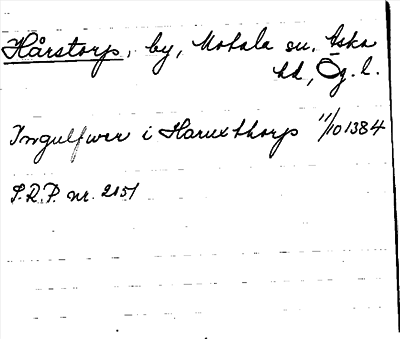 Hårstorp, by, Motala sn, Aska
hd, Ög. l.
Ingulfwer i Haruxthorp 11/10 1384
S.R.P. nr. 2151